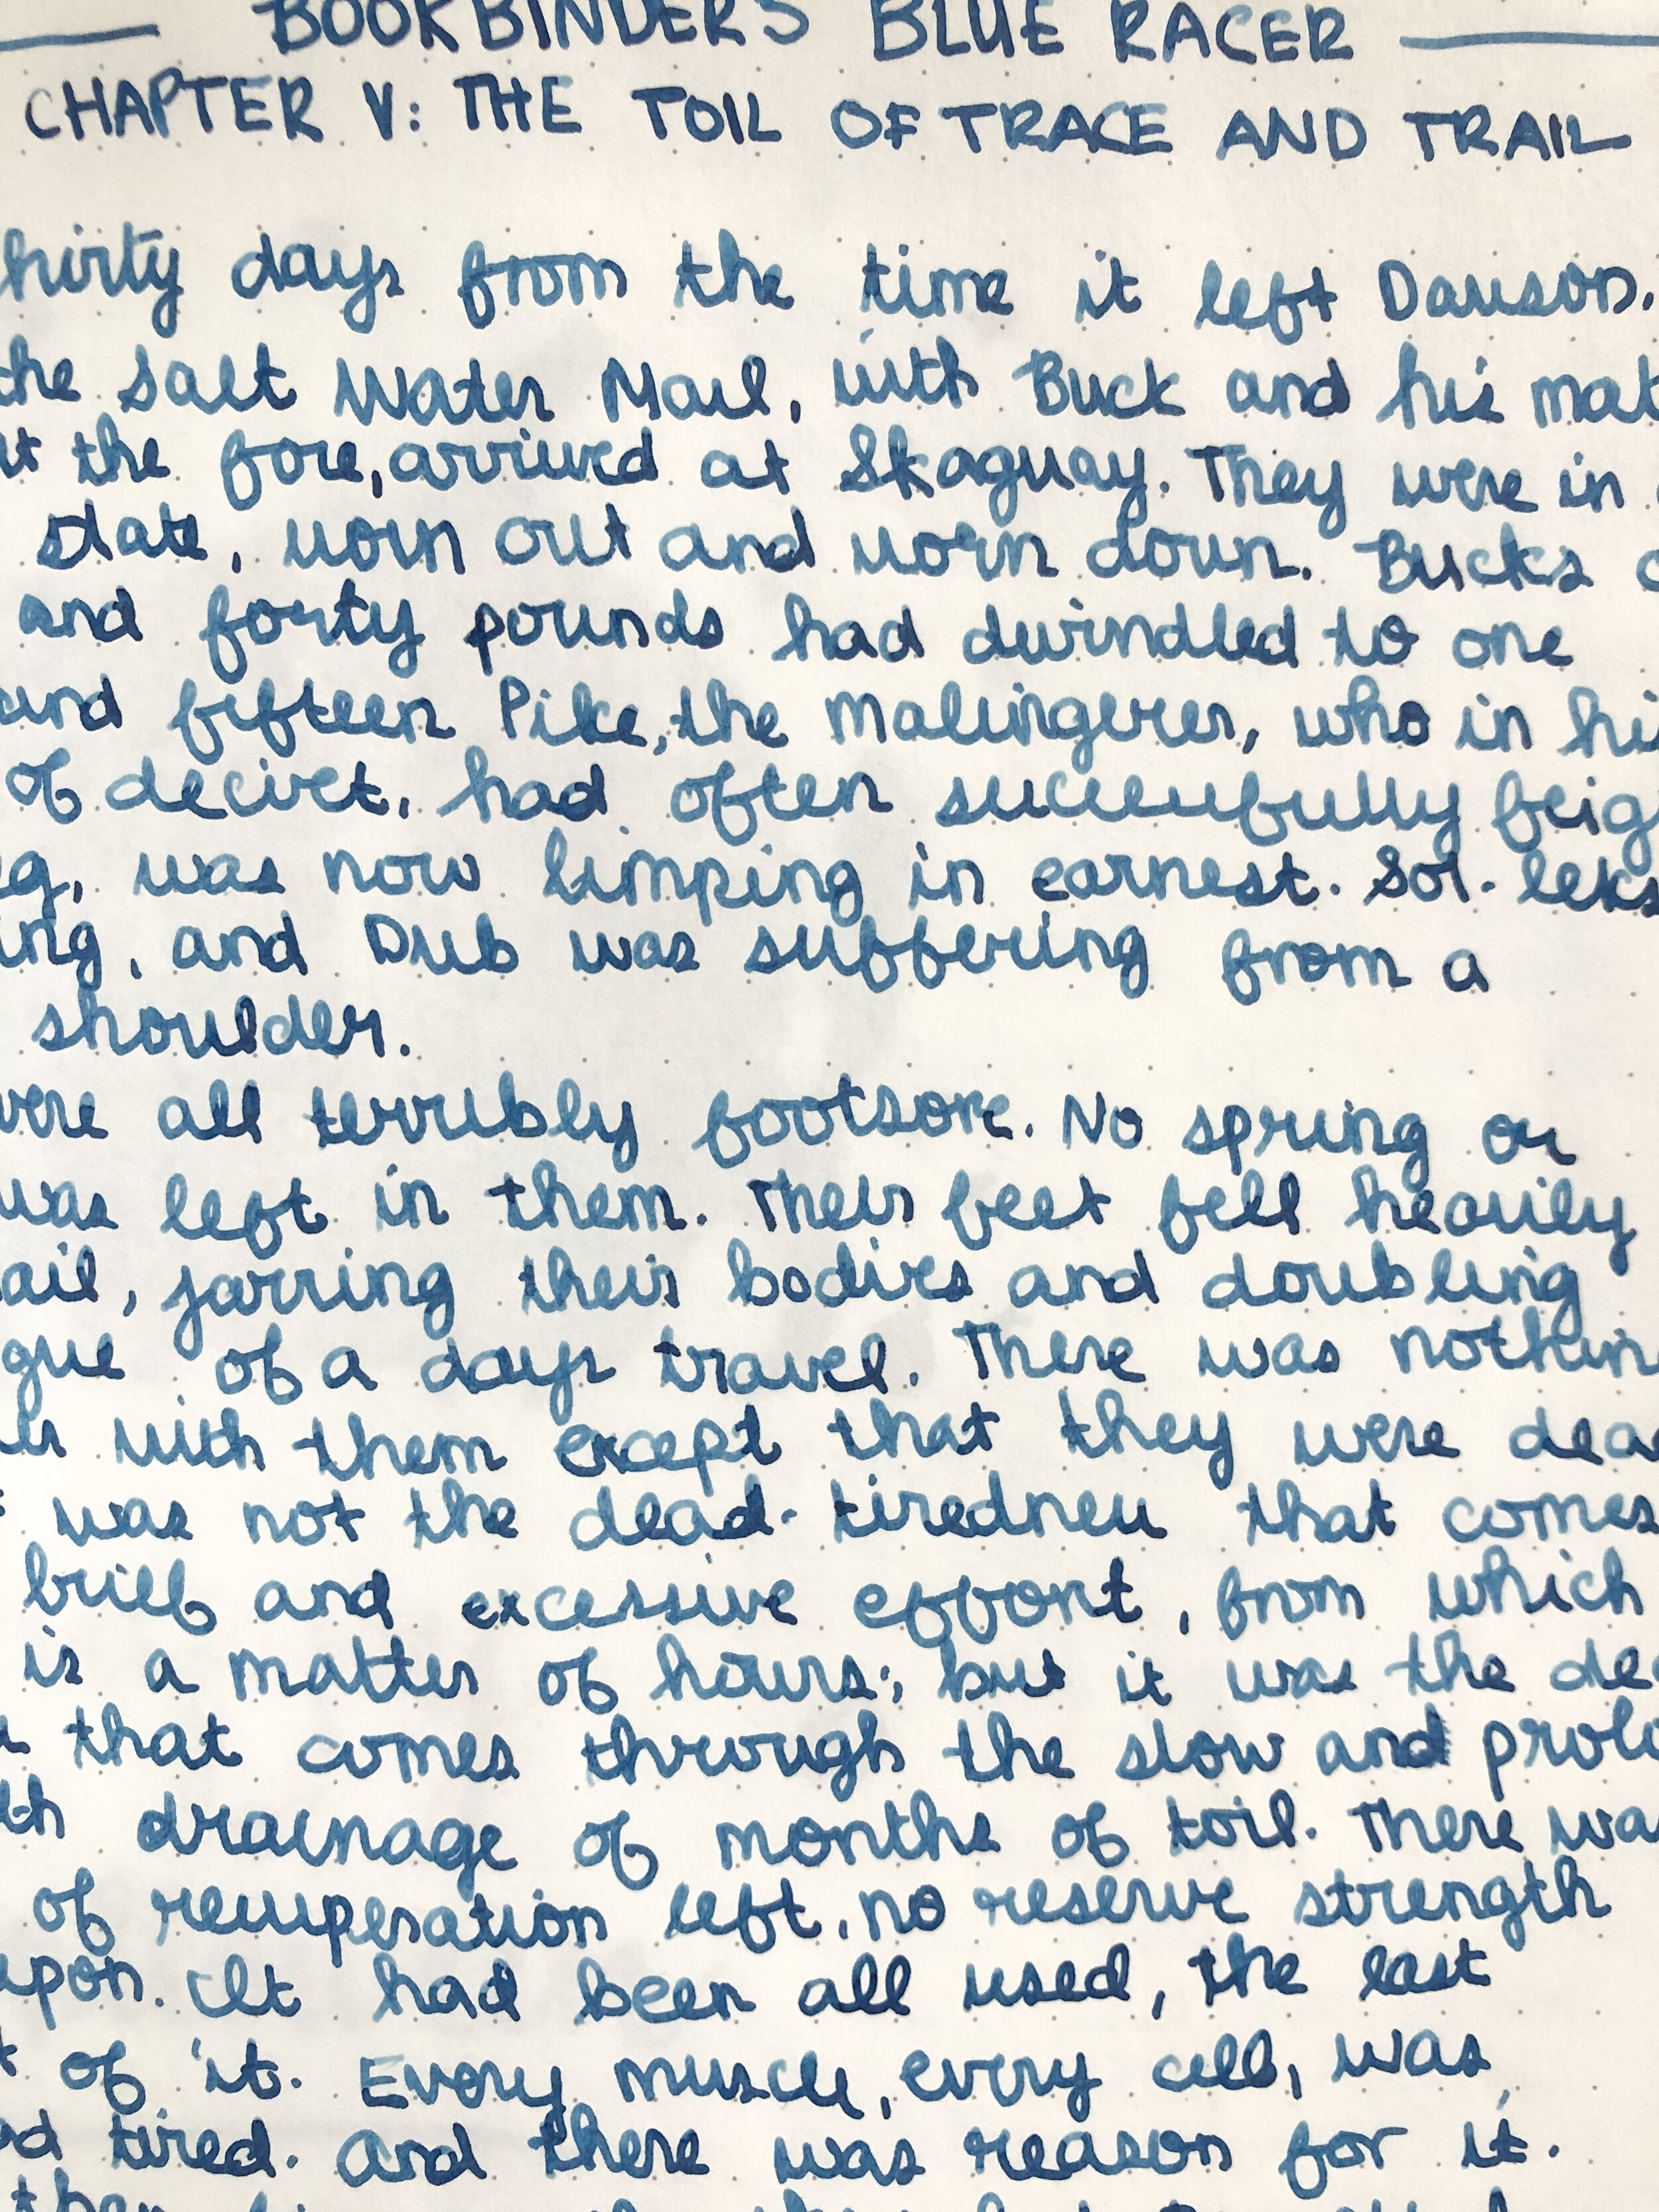 BOOKBINDERS BLUE RACER
CHAPTER V: THE TOIL OF TRACE AND TRAIL
hirty days from the time it left Dawson.
the Salt Water Mail, with Buck and his mat
at the fore, arrived at Skaguay. They were in
state, worn out and worn down. Bucks
and forty pounds had dwindled to one
and fifteen Pike, the Malingerer, who in hi
of deciet, had often successfully feig
g, was now limping in earnest. Sol-leks
ing, and Dub was suffering from a
shoulder.
were all terribly footsore. No spring or
was left in them. Their feet fell heavily
ail, jarring their bodies and doubling
gue of a days travel. There was nothin
er with them except that they were dea
was not the dead-tiredness that comes
brief and excessive effort, from which
is a matter of hours; but it was the dea
that comes through the slow and prolo
th drainage of months of toil. There wa
of recuperation left, no reserve strength
upon. It had been all used, the last
t of it. Every muscle, every cell, was
ad tired. And there was reason for it.